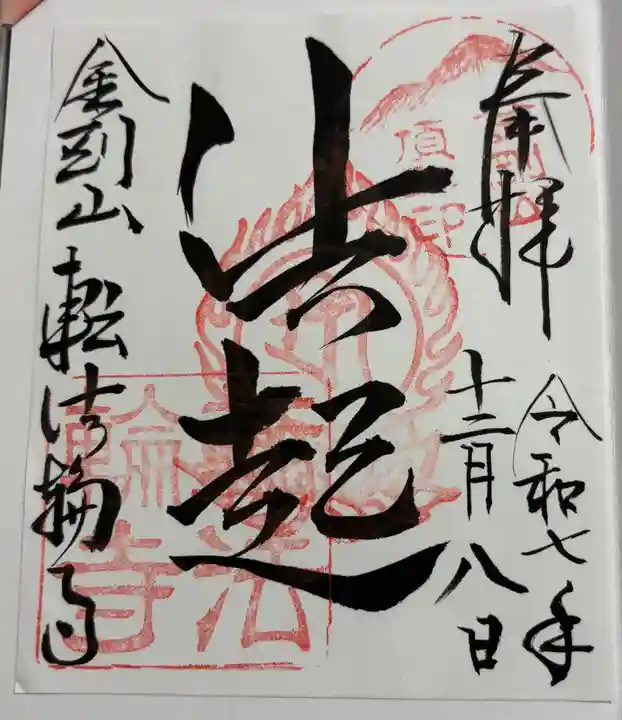 奉拝
令和七年
十二月八日
法起
金剛山転法輪寺
法
輪寺